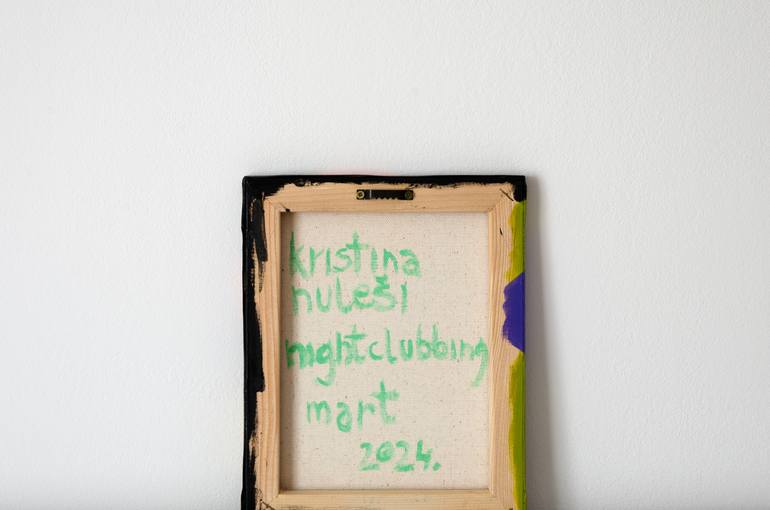 kristina
nuleši
nightclubbing
mart
2024.